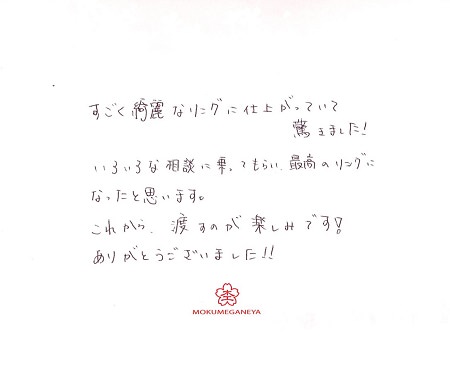 すごく綺麗なリングに仕上がっていて
驚きました!
いろいろな相談に乗ってもらい、最高のリングに
なったと思います。
これから、渡すのが楽しみです!
ありがとうございました!!
MOKUMEGANEYA